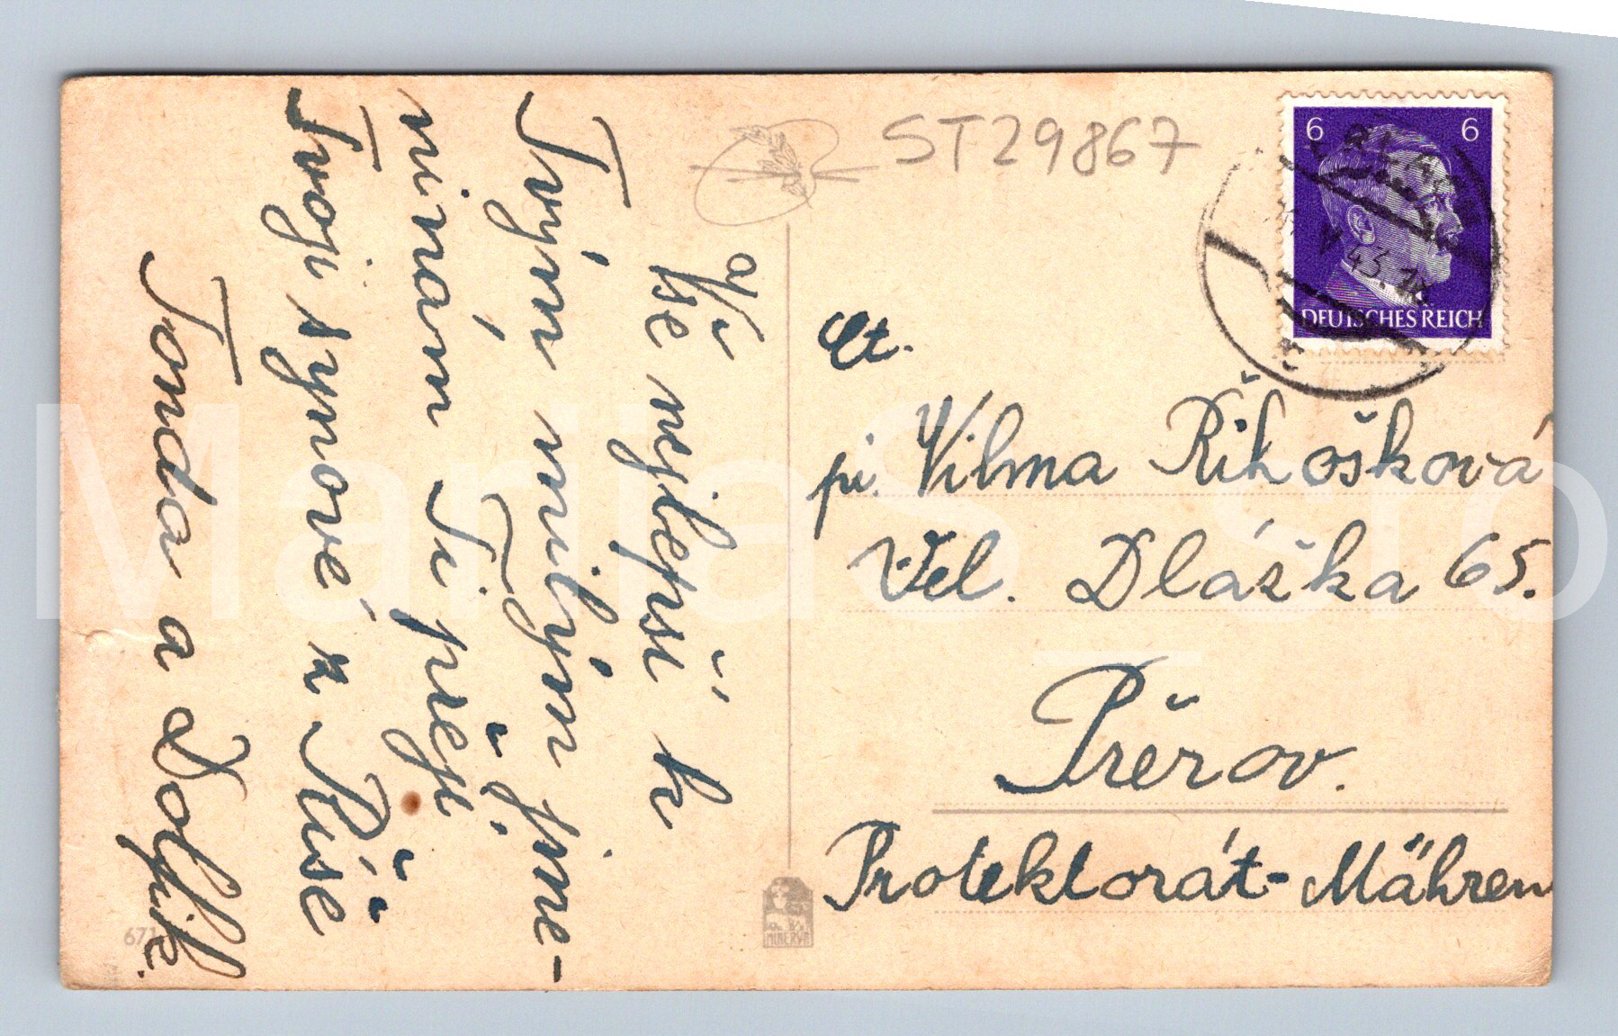 ST29867
6 6
DEUTSCHES REICH
Vše nejlepší k
Tvým milým jme-
ninám Ti přejí
Tvoji synové z Říše
Tonda a Dolfík.
Ct.
pí. Vilma Řikošková
Vel. Dlážka 65.
Přerov.
Protektorát-Mähren
MINERVA
671
MariaS_sro